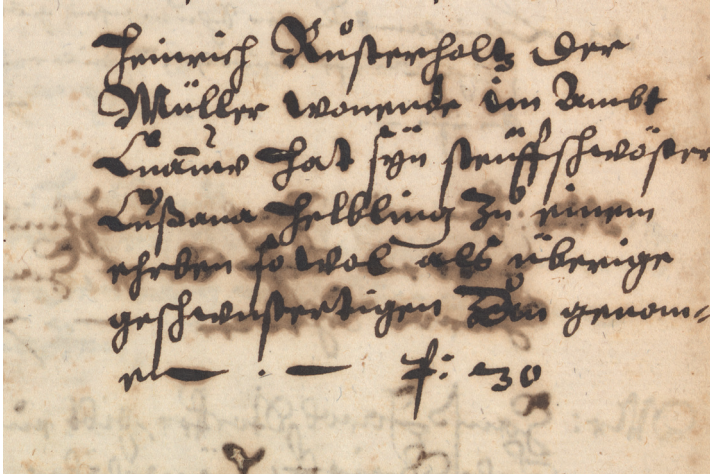 Heinrich Růsterholtz der
Müller wonende im Ambt
hat syn steüffschwöster
Sušana Helbling Zů einem
ehrben so wol als überige
geschwüstertigen an genom-
en — . — f: 30